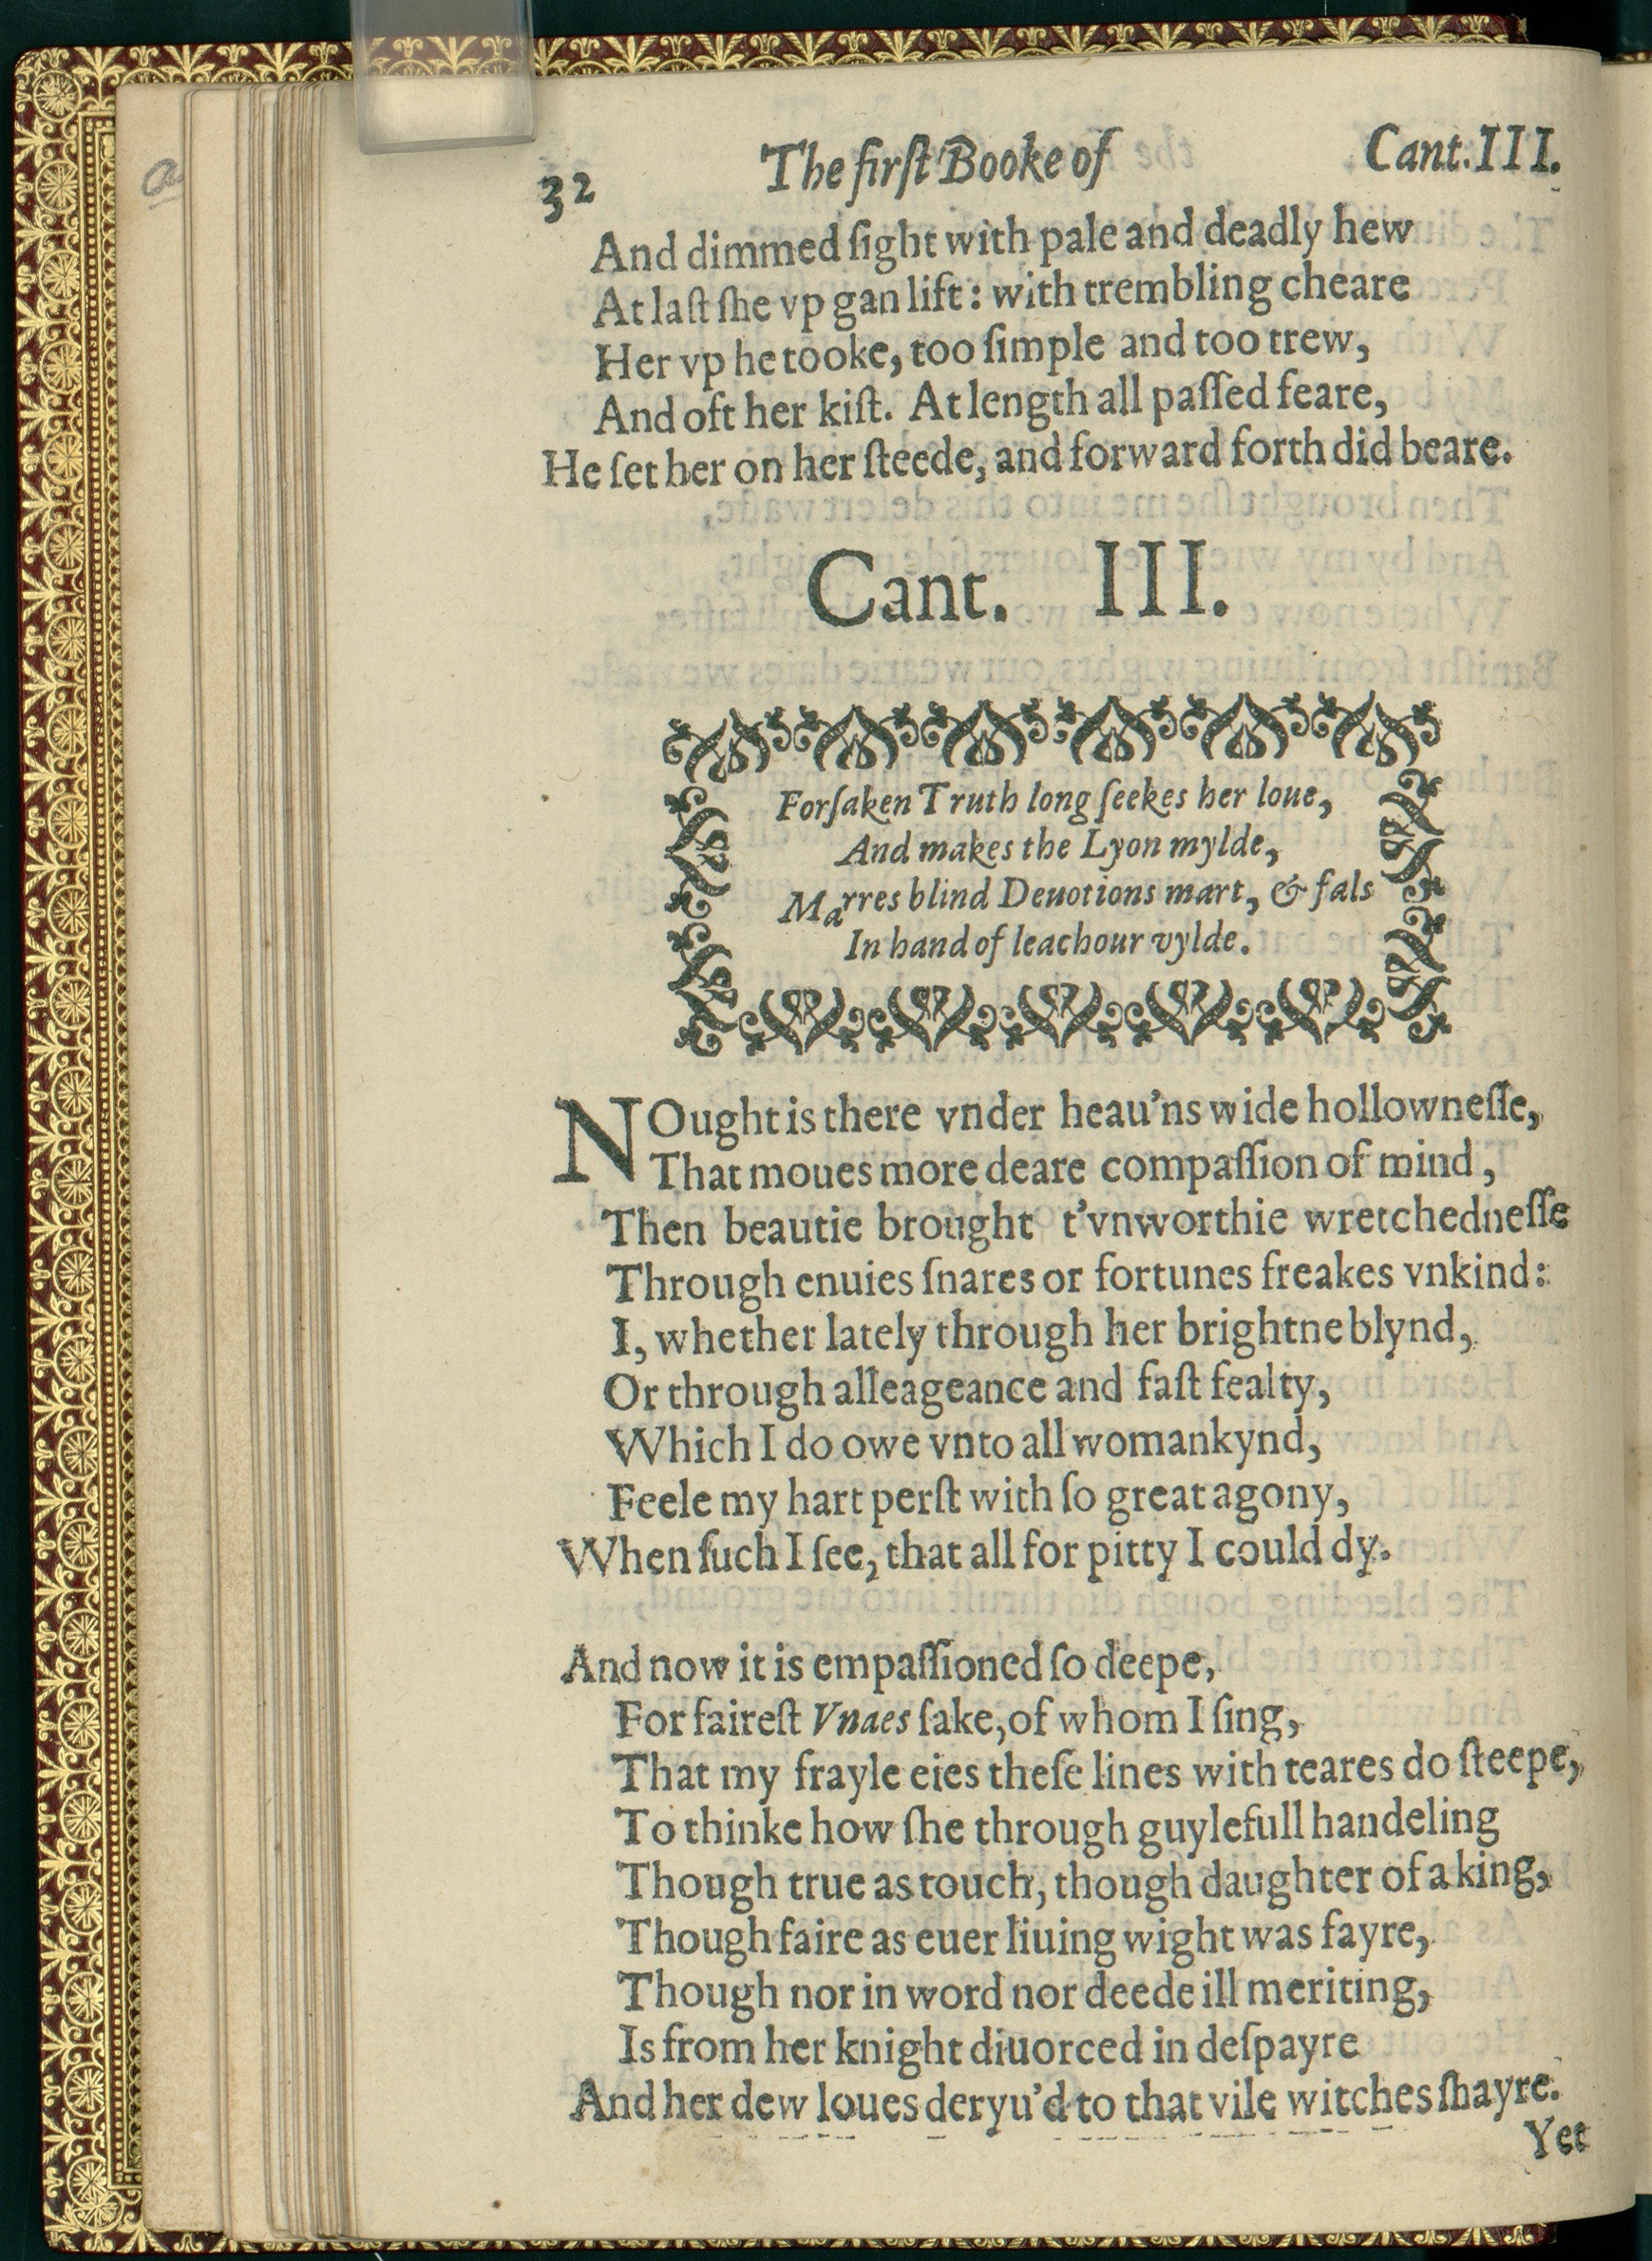 a
32 The firſt Booke of Cant. III.
And dimmed ſight with pale and deadly hew
At laſt ſhe vp gan lift: with trembling cheare
Her vp he tooke, too ſimple and too trew,
And oft her kiſt. At length all paſſed feare,
He ſet her on her ſteede, and forward forth did beare.
Cant. III.
Forſaken Truth long ſeekes her loue,
And makes the Lyon mylde,
Marres blind Deuotions mart, & fals
In hand of leachour vylde.
NOught is there vnder heau'ns wide hollowneſſe,
That moues more deare compaſſion of mind,
Then beautie brought t'vnworthie wretchedneſſe
Through enuies ſnares or fortunes freakes vnkind:
I, whether lately through her brightne blynd,
Or through alleageance and faſt fealty,
Which I do owe vnto all womankynd,
Feele my hart perſt with ſo great agony,
When ſuch I ſee, that all for pitty I could dy.
And now it is empaſſioned ſo deepe,
For faireſt Vnaes ſake, of whom I ſing,
That my frayle eies theſe lines with teares do ſteepe,
To thinke how ſhe through guylefull handeling
Though true as touch, though daughter of a king,
Though faire as euer liuing wight was fayre,
Though nor in word nor deede ill meriting,
Is from her knight diuorced in deſpayre
And her dew loues deryu'd to that vile witches ſhayre.
Yet